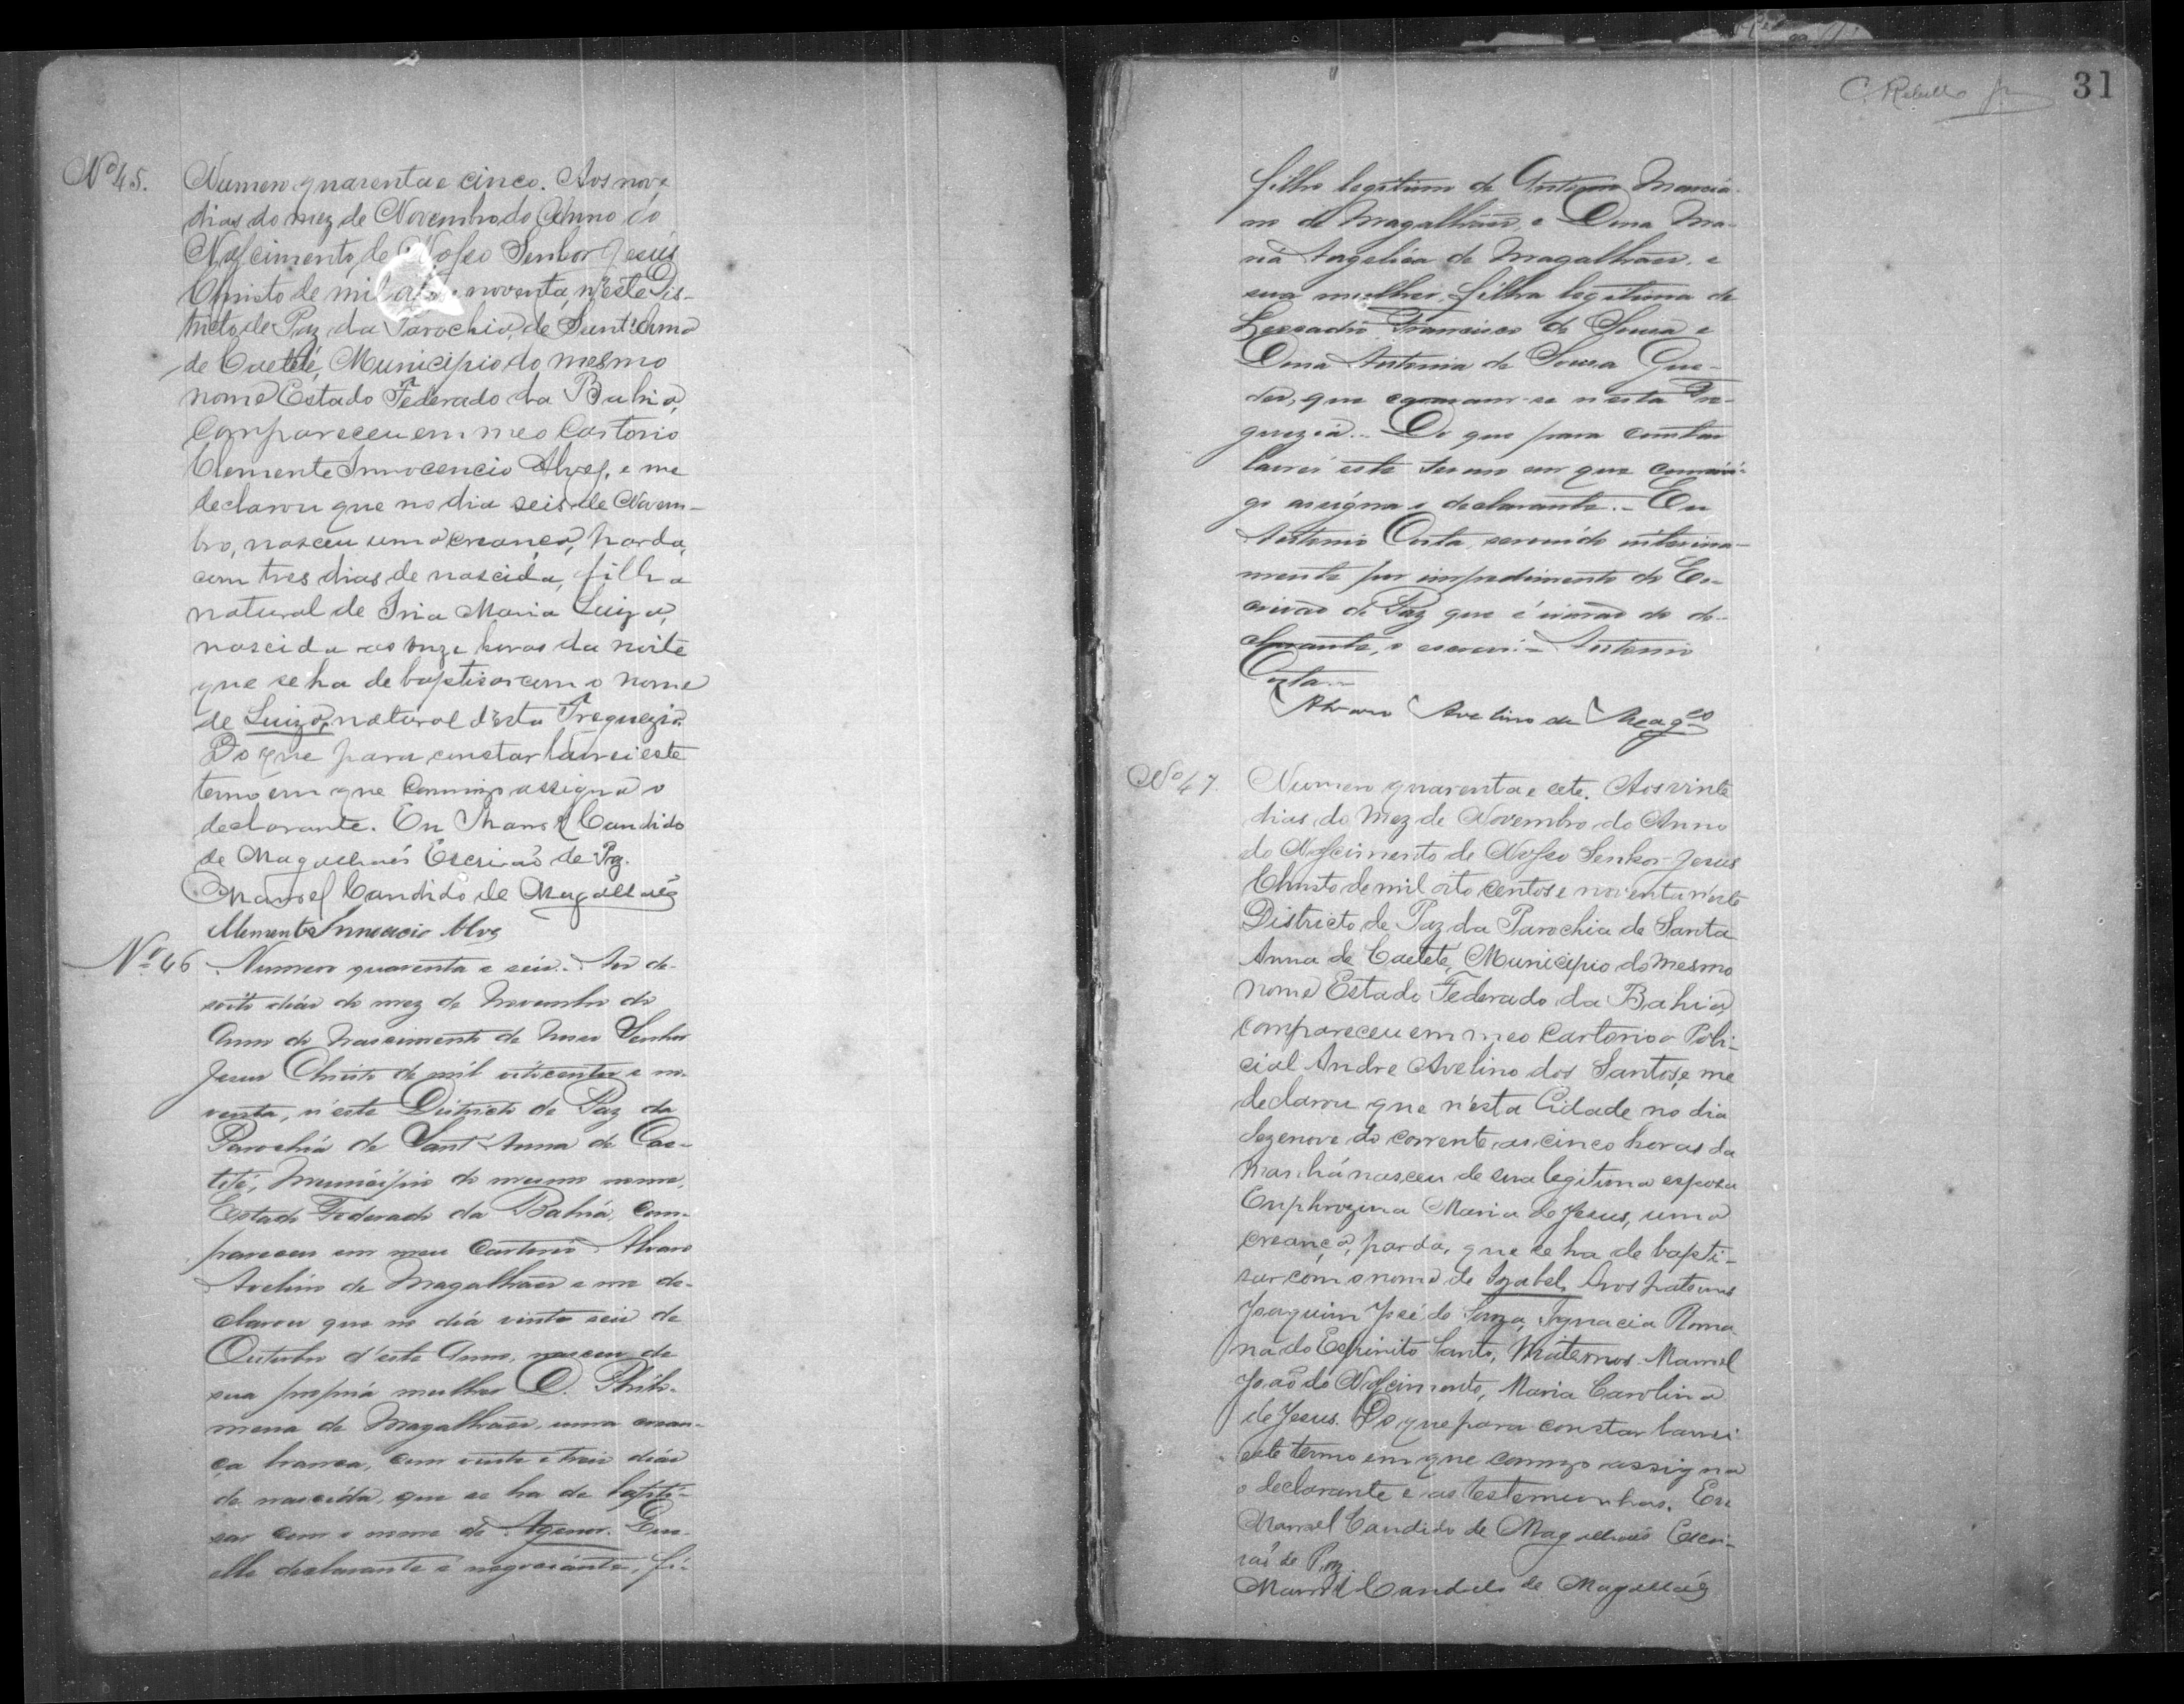 Nº 45. Numero quarenta e cinco. Aos nove
dias do mez de Novembro do Anno do
Nascimento de Nosso Senhor Jesús
Christo de mil e noventa, n'este Dis-
tricto de Paz da Parochia, de Sant'Anna
de Caetété, Municipio do mesmo
nome Estado Federado da Bahia,
Compareceu em meo Cartorio
Clemente Innocencio Alves, e me
declarou que no dia seis de Novem-
bro, nasceu uma creança, parda,
com tres dias de nascida, filha
natural de Iria Maria Luiza,
nascida as onze horas da noite
que se ha de baptisar com o nome
de Luiza, natural d'esta Freguezia.
Do que para constar lavrei este
termo em que commigo assigna o
declarante. Eu Manoel Candido
de Magalhaés Escrivaõ de Paz.
Manoel Candido de Magalhaés
Clemente Innocencio Alves
Nº 46 Numero quarenta e seis. Aos de-
soito dias do mez de Novembro do
Anno do Nascimento de Nosso Senhor
Jesus Christo de mil oitocentos e no-
venta, n'este Districto de Paz da
Parochia de Sant'Anna de Cae-
tité, Municipio do mesmo nome,
Estado Federado da Bahia, com-
pareceu em meu Cartorio Alvaro
Avelino de Magalhães e me de-
clarou que no dia vinte seis de
Outubro d'este Anno, nasceu de
sua propria mulher D. Philo-
mena de Magalhães, uma crean-
ça branca, com vinte e tres dias
de nascida, que se ha de bapti-
sar com o nome de Agenor.
elle declarante é negociante, fi-
C. Rebello Jr
31
filho legitimo de Antonio Marcia-
no de Magalhães, e Dona Ma-
ria Angelica de Magalhães, e
sua mulher filha legitima de
Leocadio Francisco de Sousa e
Dona Antonia de Sousa Gue-
des, que casaram-se nesta Fre-
guezia.. Do que para constar
lavrei este termo em que commi-
go assigna o declarante.- Eu
Antonio Costa, servindo interina-
mente por impedimento do Es-
crivão de Paz que é irmão do de-
clarante, o escrevi.- Antonio
Costa..
Alvaro Avelino de Mag.es
Nº 47. Numero quarenta e sete. Aos vinte
dias do mez de Novembro do Anno
do Nascimento de Nosso Senhor Jesus
Christo de mil oito centos e noventa n'este
Districto de Paz da Parochia de Santa
Anna de Caetété, Municipio do mesmo
nome Estado Federado da Bahia,
compareceu em meo Cartorio o Poli-
cial Andre Avelino dos Santos, e me
declarou que n'esta Cidade no dia
dezenove do corrente, as cinco horas da
manhá nasceu de sua legitima esposa
Euphrozina Maria de Jesus, uma
creança, parda, que se ha de bapti-
sar com o nome de Izabel, Avos paternos
Joaquim José de Souza, Ignacia Roma
na do Espirito Santo, Maternos Manoel
João do Nascimento, Maria Carolina
de Jesus. Do que para constar lavrei
este termo em que comigo assigna
o declarante e as testemunhas. Eu
Manoel Candido de Magalhaés Escri-
vaõ de Paz
Manoel Candido de Magalhaés